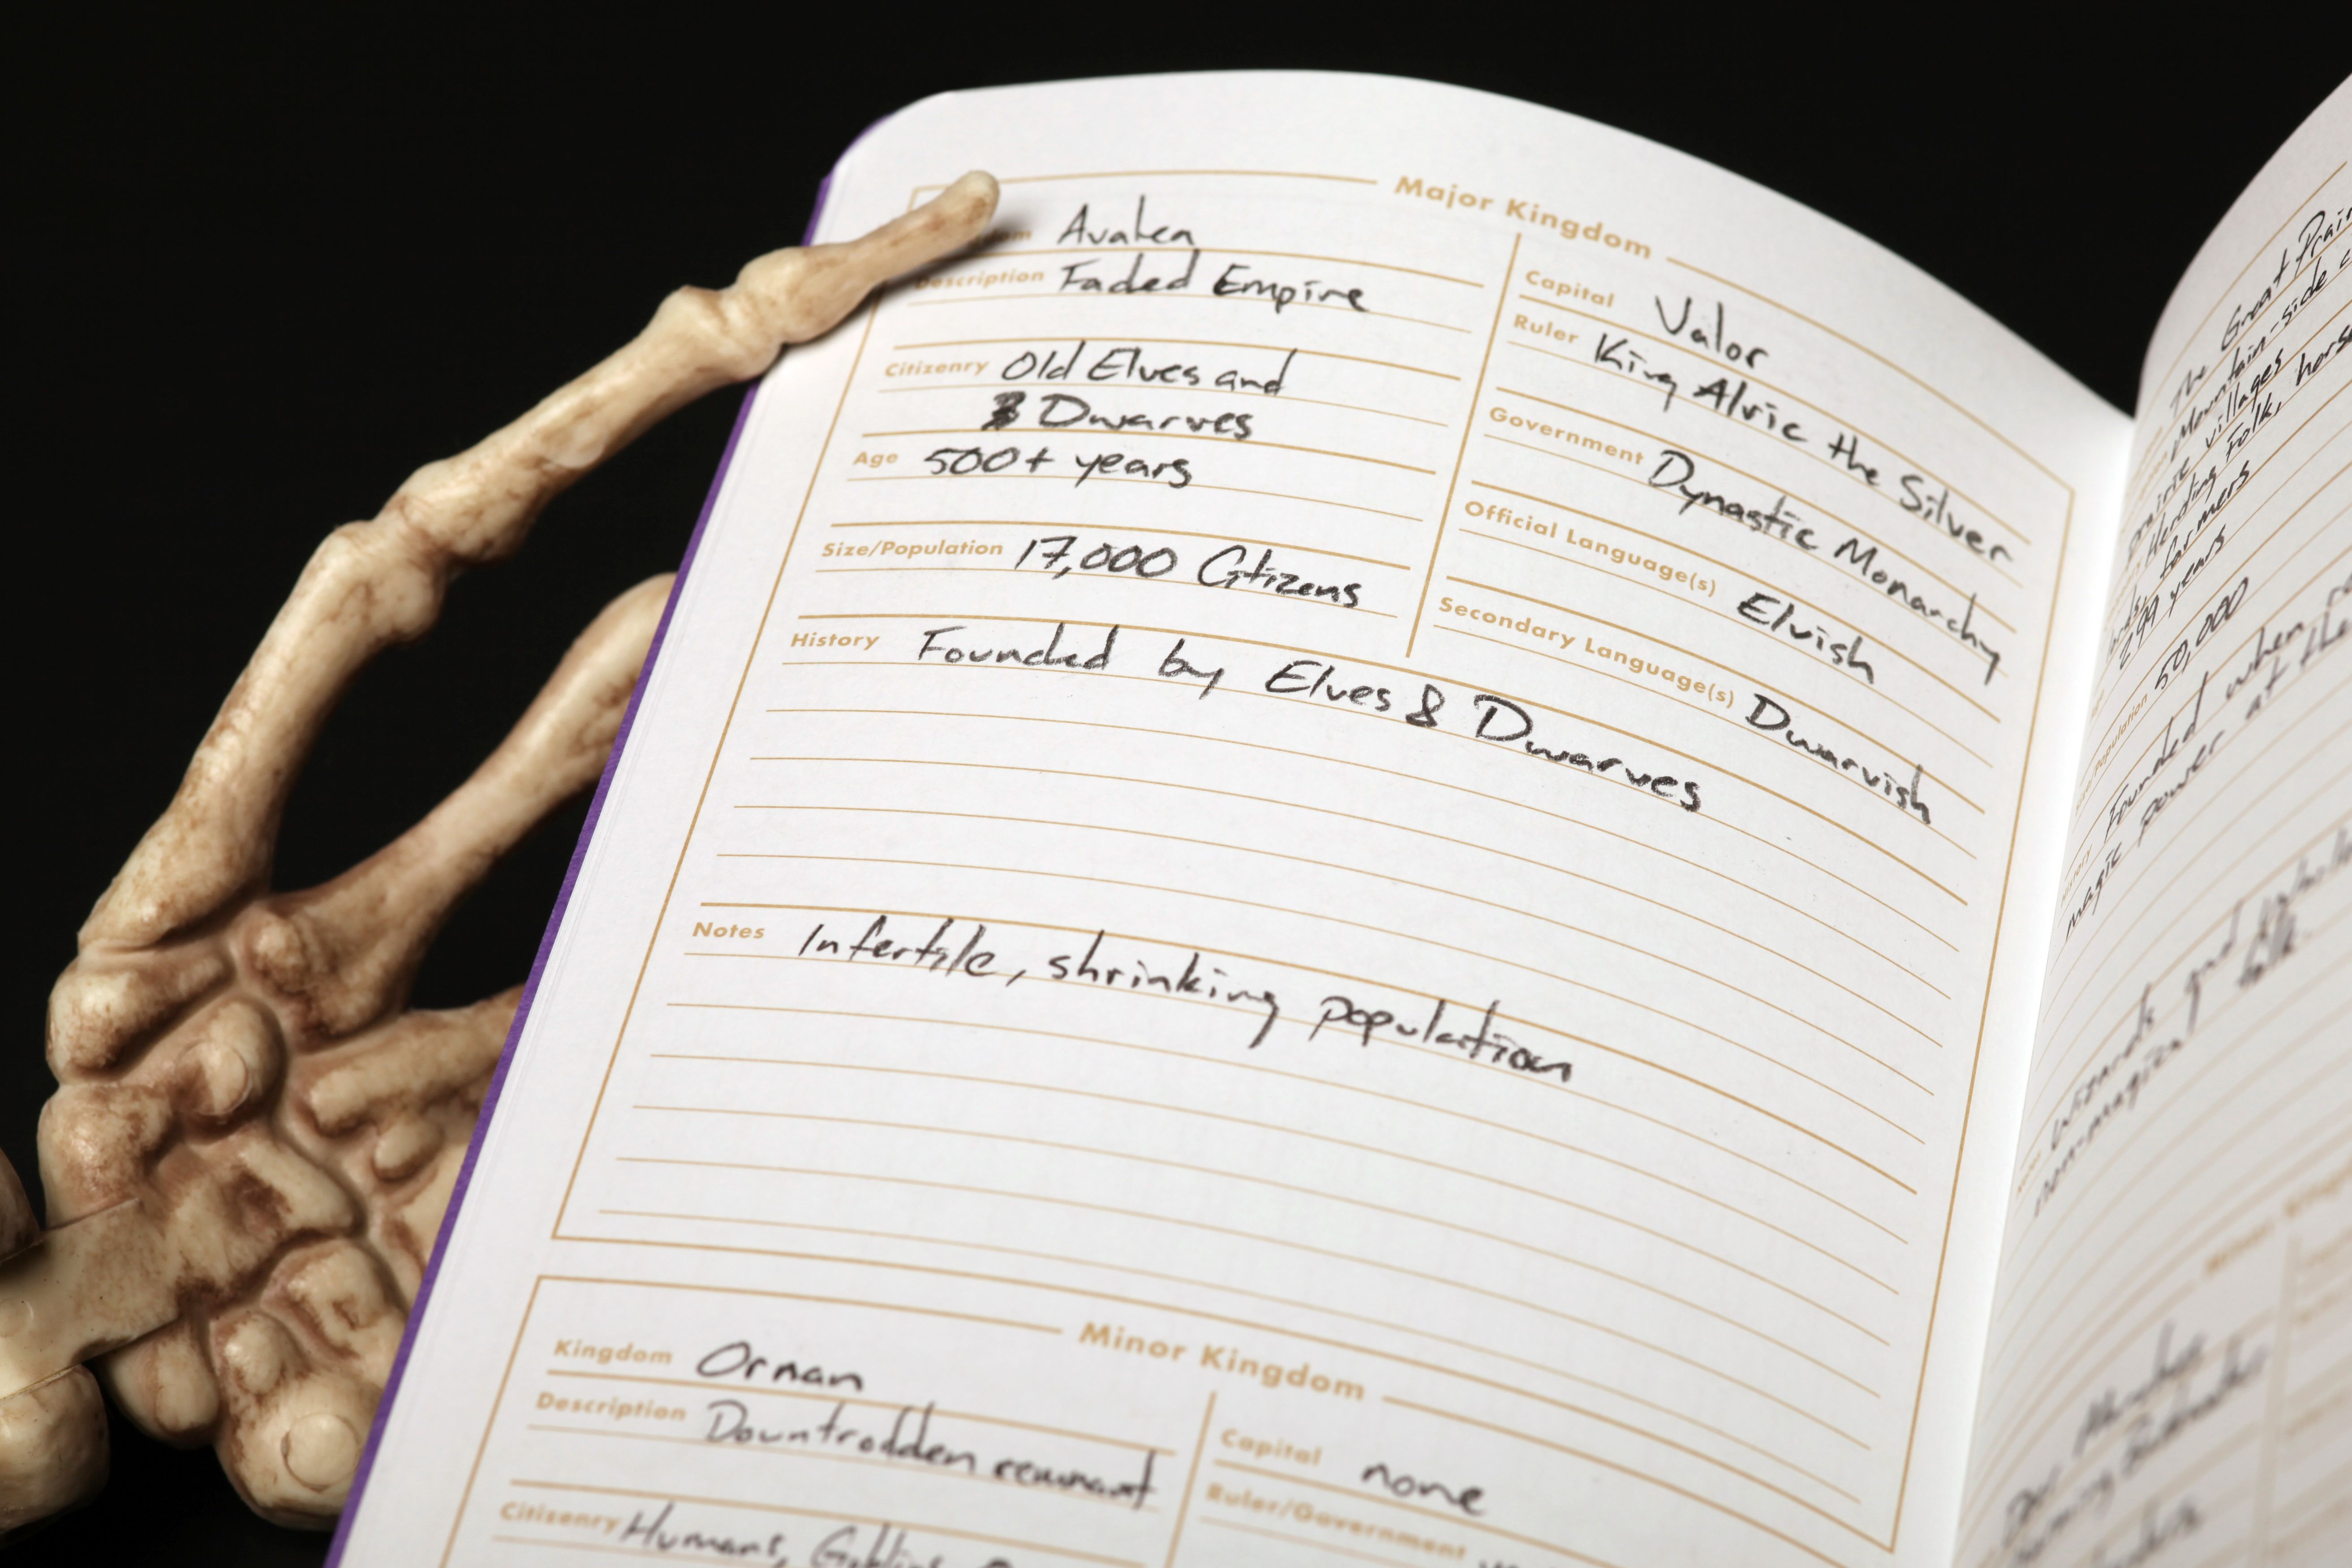 Major Kingdom
Avalen
Description Faded Empire
Citizenry Old Elves and
Dwarves
Age 500+ years
Size/Population 17,000 Citizens
Capital Valor
Ruler King Alric the Silver
Government Dynastic Monarchy
Official Language(s) Elvish
Secondary Language(s) Dwarvish
History Founded by Elves & Dwarves
Notes Infertile, shrinking population
Minor Kingdom
Kingdom Ornan
Description Downtrodden remnant
Citizenry Humans, Goblins
Capital none
Ruler/Government
The Great
Mountain-side
prairie villages
Herding Folk, horse
farmers
299 years
Population 50,000
Founded when
magic power at the
Wizards and
non-magical folk.